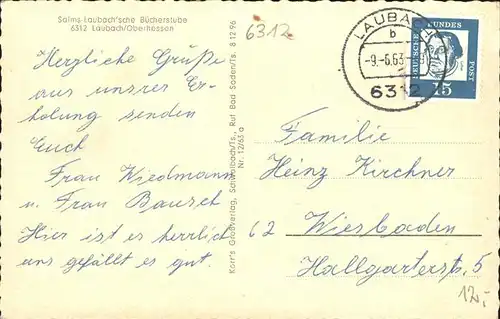 Salms Laubach'sche Bücherstube
6312 Laubach/Oberhessen
Herzliche Grüße
aus unsrer Er-
holung senden
Euch
Frau Wiedmann
u. Frau Bausch
Hier ist es herrlich
uns gefällt es gut.
Korr's Großverlag, Ruf Bad Soden/Ts. 8 12 96
Nr. 12/63 a
6312
LAUBACH
b
-9.-6.63
6312
DEUTSCHE BUNDESPOST
15
Familie
Heinz Kirchner
62 Wiesbaden
Hallgarterstr. 5
12,-